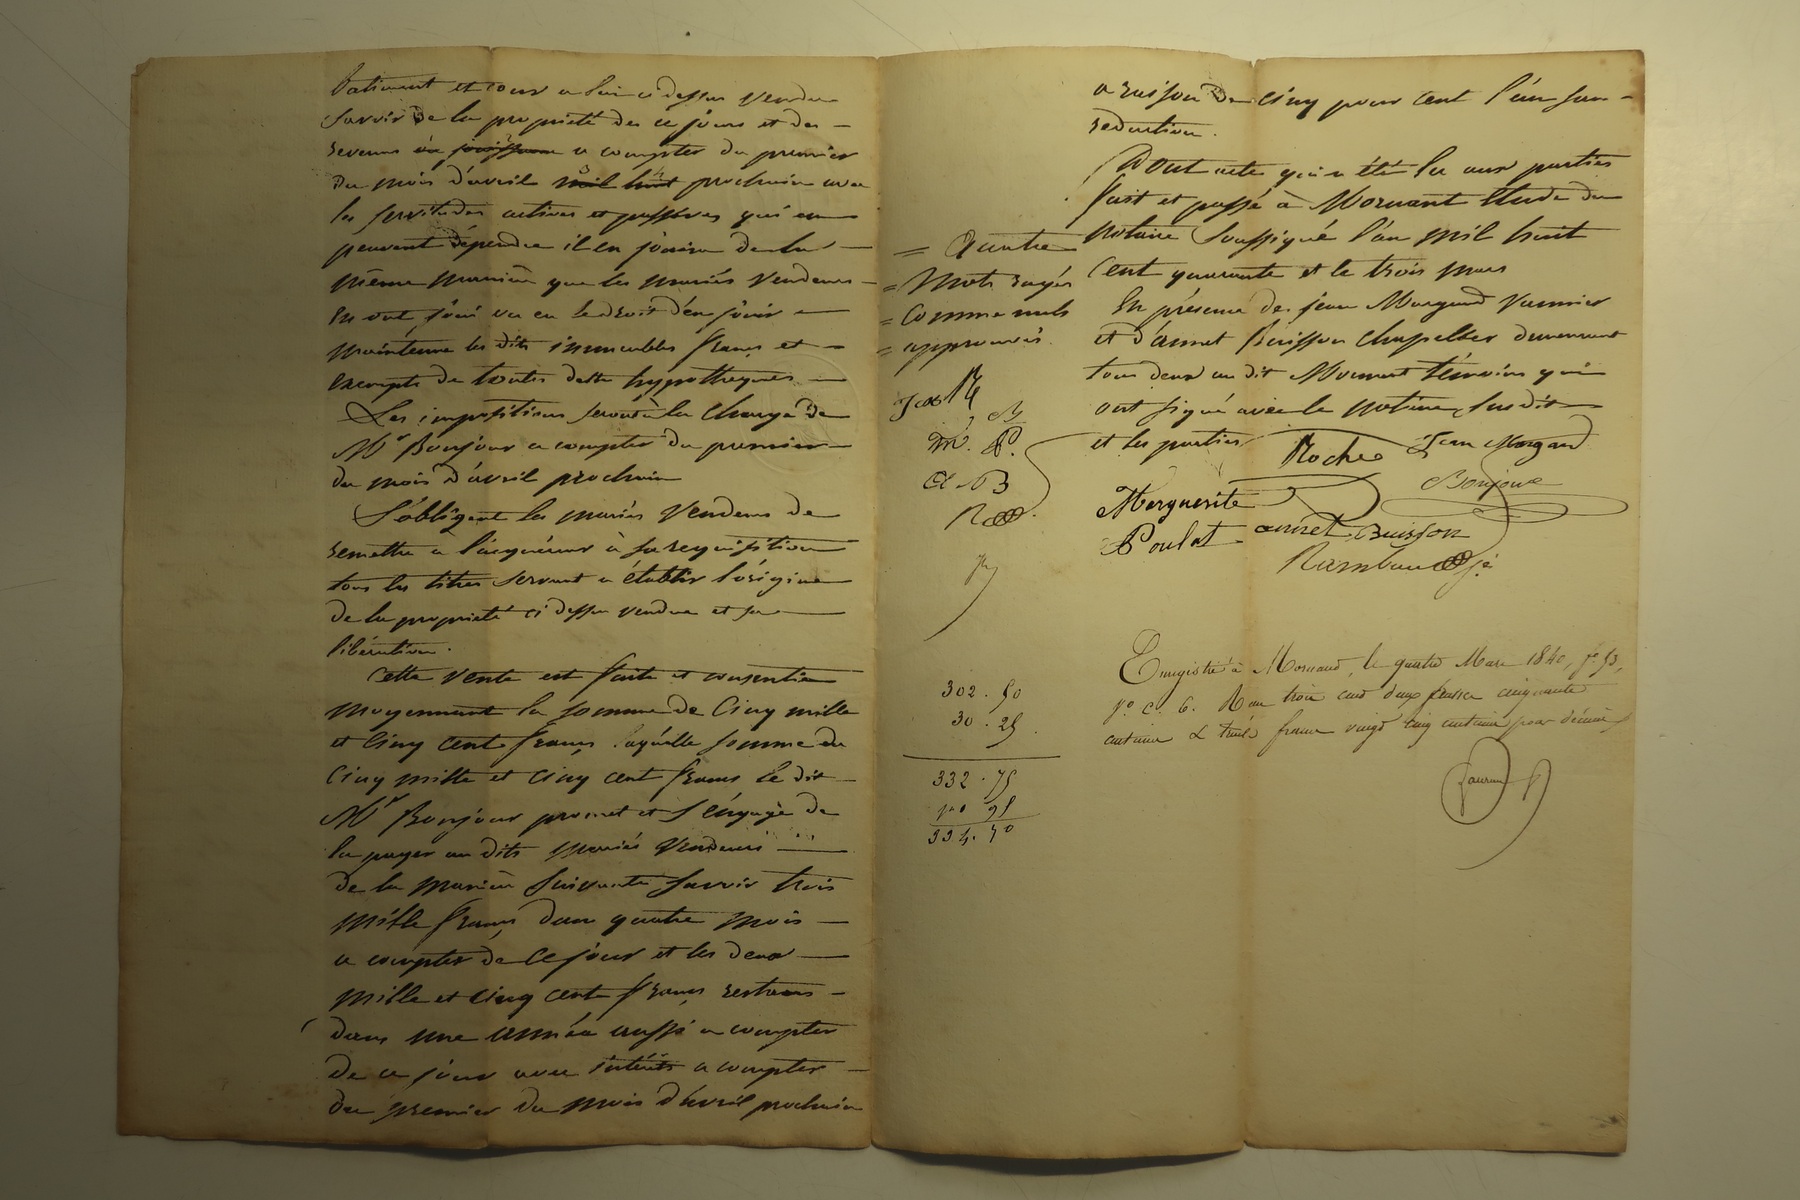 batiment et cour a lui ci dessus vendu
savoir de la propriété des ce jour et des
revenus en jouissance a compter du premier
du mois d'avril mil huit prochain avec
les servitudes actives et passives qui en
peuvent dépendre il en jouira de la
même maniere que les mariés vendeurs
en ont joui ou eu le droit d'en jouir
maintenu les dits immeubles francs et
exempts de toutes dette hypotheques
Les impositions seront à la charge de
Mr Bonjour a compter du premier
du mois d'avril prochain
S'obligent les mariés vendeurs de
remettre à l'acquéreur à sa requisition
tous les titres servant a établir l'origine
de la propriété ci dessus vendue et sa
libération.
Cette vente est faite et consentie
moyennant la somme de cinq mille
et cinq cent francs laquelle somme de
cinq mille et cinq cent francs le dit
Mr Bonjour promet et s'engage de
la payer au dits mariés vendeurs
de la maniere suivante savoir trois
mille francs dans quatre mois
a compter de ce jour et les deux
mille et cinq cents francs restans
dans une année aussi a compter
de ce jour avec intérêts a compter
du premier du mois d'avril prochain
= quatre
= mots rayés
= comme nuls
= approuvés.
m. P.
a B
302 . 50
30 . 25
332 . 75
a raison de cinq pour cent l'an sans
reduction.
Dont acte qui a été lu aux parties
fait et passé à Mornant étude du
notaire soussigné l'an mil huit
cent quarante et le trois mars
En présence de jean Margand vannier
et d'annet Buisson chapelier demeurant
tous deux au dit Mornant témoins qui
ont signé avec le notaire susdit
et les parties
Roche Jean Margand
Bonjour
Merguerite
Poulat annet Buisson
Enregistré à Mornand, le quatre Mars 1840, fo 53,
vo c. 6. Reçu trois cent deux francs cinquante
centimes & trente francs vingt cinq centimes pour décime